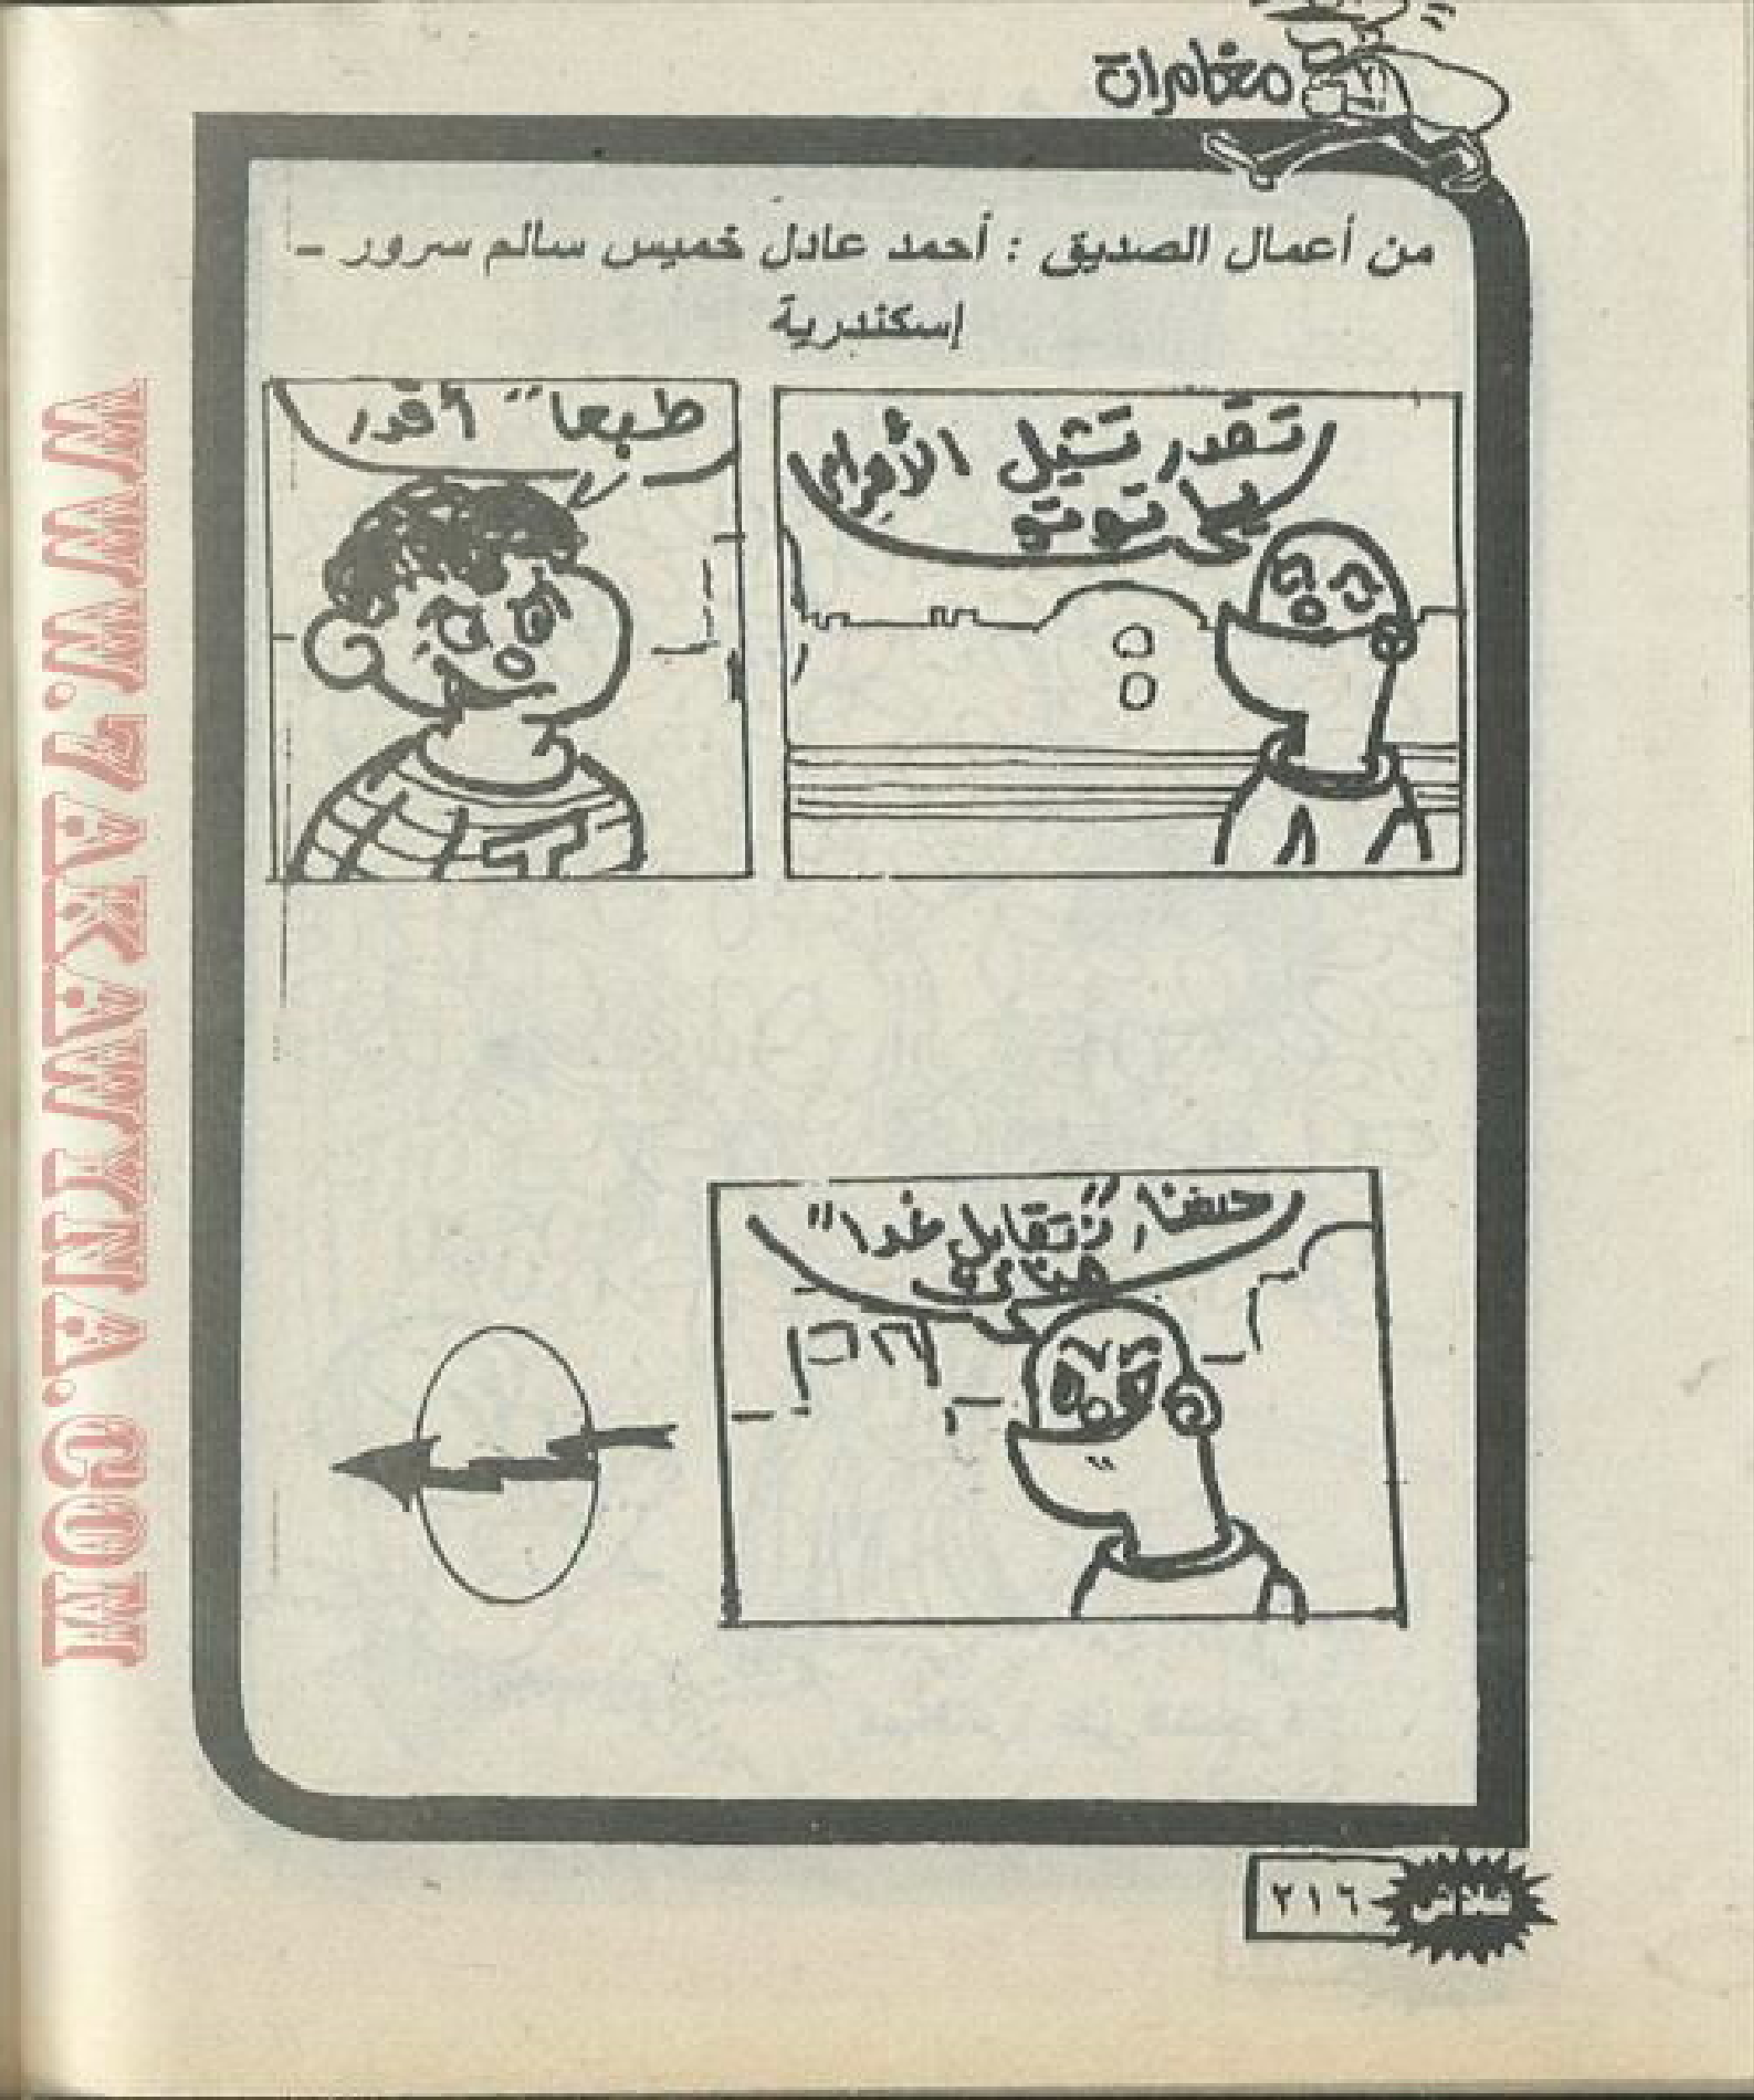 مغامرات
من أعمال الصديق : أحمد عادل خميس سالم سرور –
إسكندرية
تقدر تشيل الأهرام
يا توتو
طبعا" أقدر
حسنا" نتقابل غدا"
هنا
فلاش
٢١٦
WWW.7AKAWTNA.COM